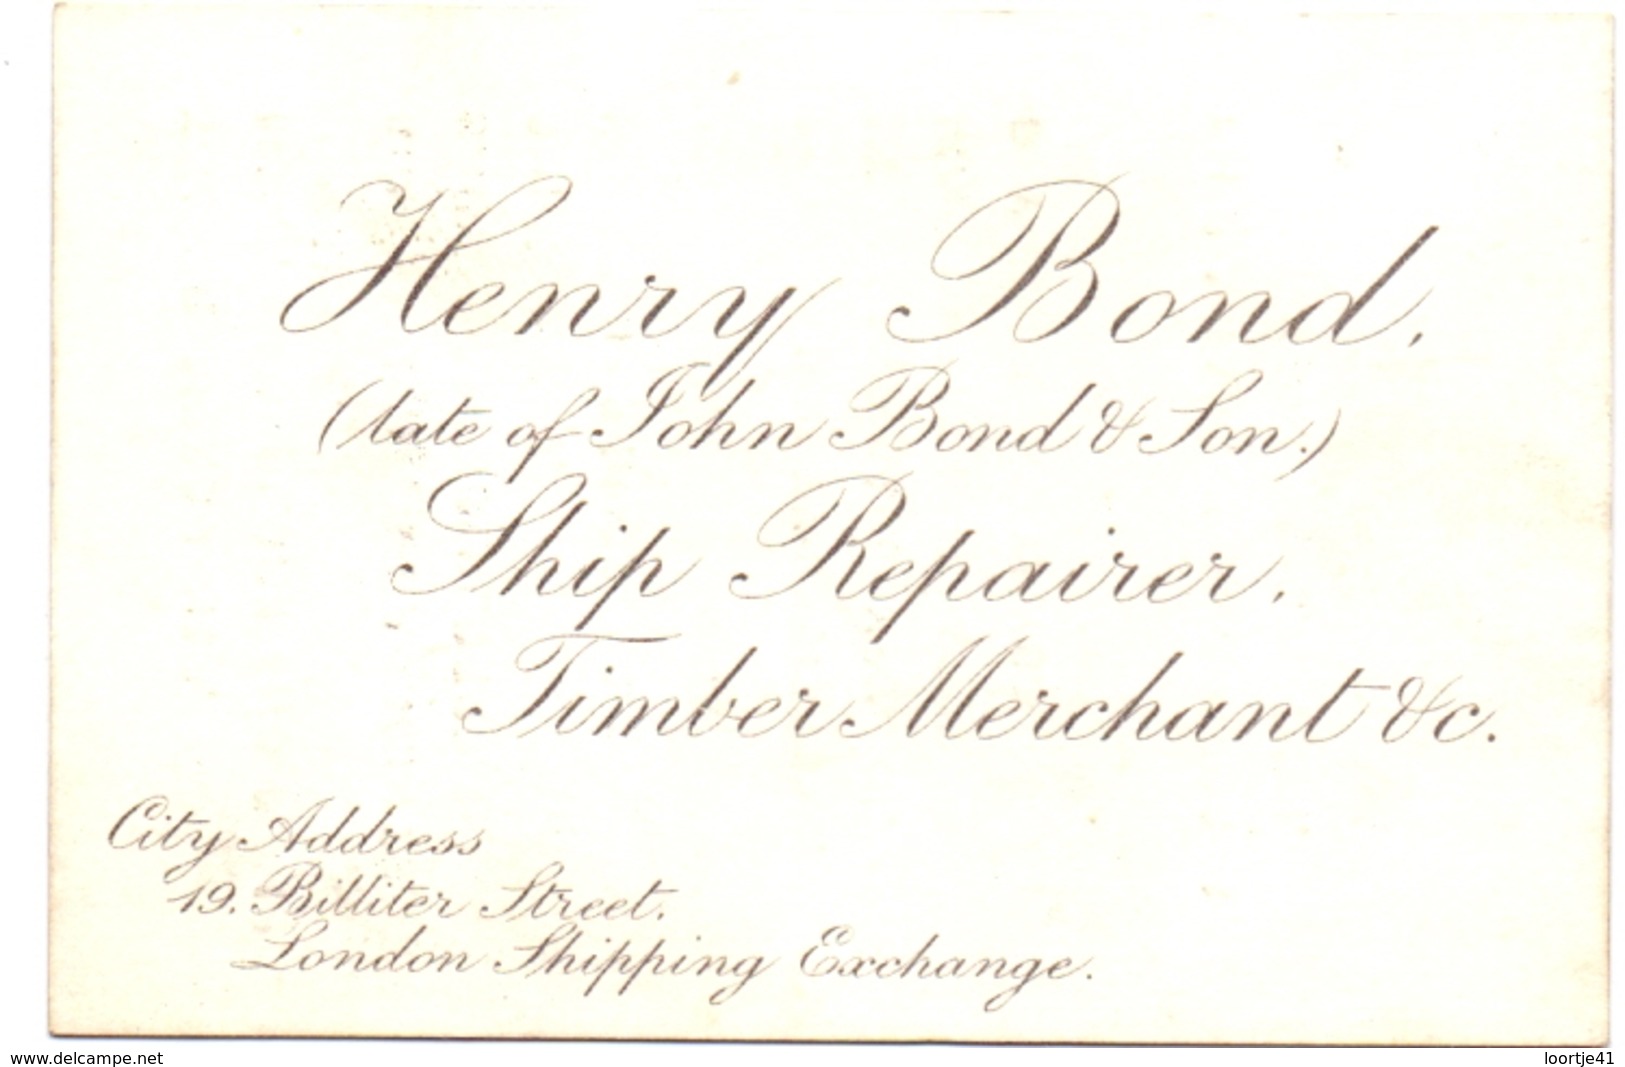 Henry Bond.
(late of John Bond & Son.)
Ship Repairer.
Timber Merchant &c.
City Address
19. Billiter Street.
London Shipping Exchange.
www.delcampe.net
loortje41